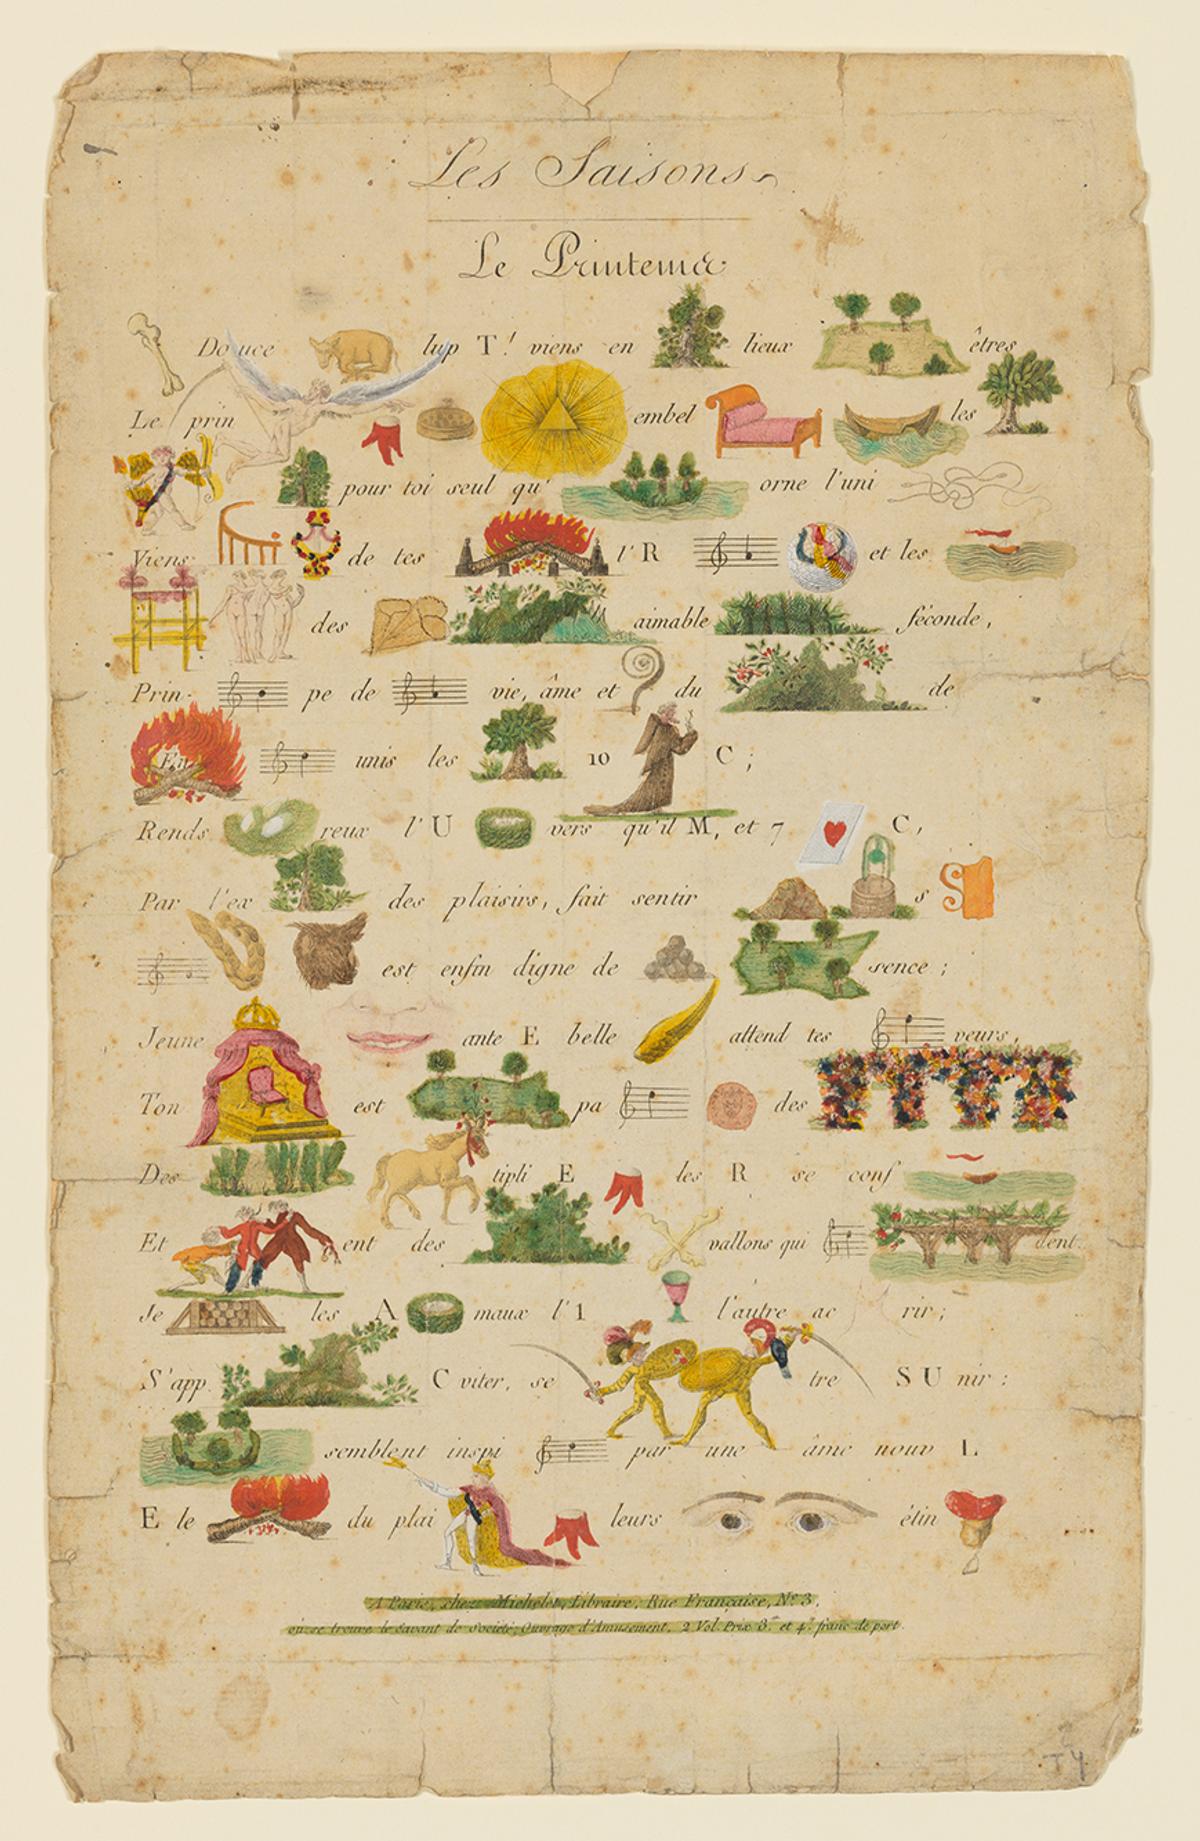 Les Saisons
Le Printems
Douce lup T! viens en lieux êtres
Le prin embel les
pour toi seul qu' orne l'uni
Viens de tes l'R et les
des aimable féconde,
Prin pe de vie, âme et du de
En unis les 10 C;
Rends reux l'U vers qu'il M, et 7 C,
Par l'ex des plaisirs, fait sentir s
est enfin digne de sence;
Jeune ante E belle attend tes veurs,
Ton est pa des
Des tipli E les R se conf
Et ent des vallons qui dent
Je les A maux l'1 l'autre ac rir;
S'app C viter, se tre S U nir:
semblent inspi par une âme nouv L
E le du plai leurs étin
A Paris, chez Michelet, Libraire, Rue Française, N° 3,
où se trouve le Savant de Société, Ouvrage d'Amusement, 2 Vol. Prix 3.tt et 4.tt franc de port.